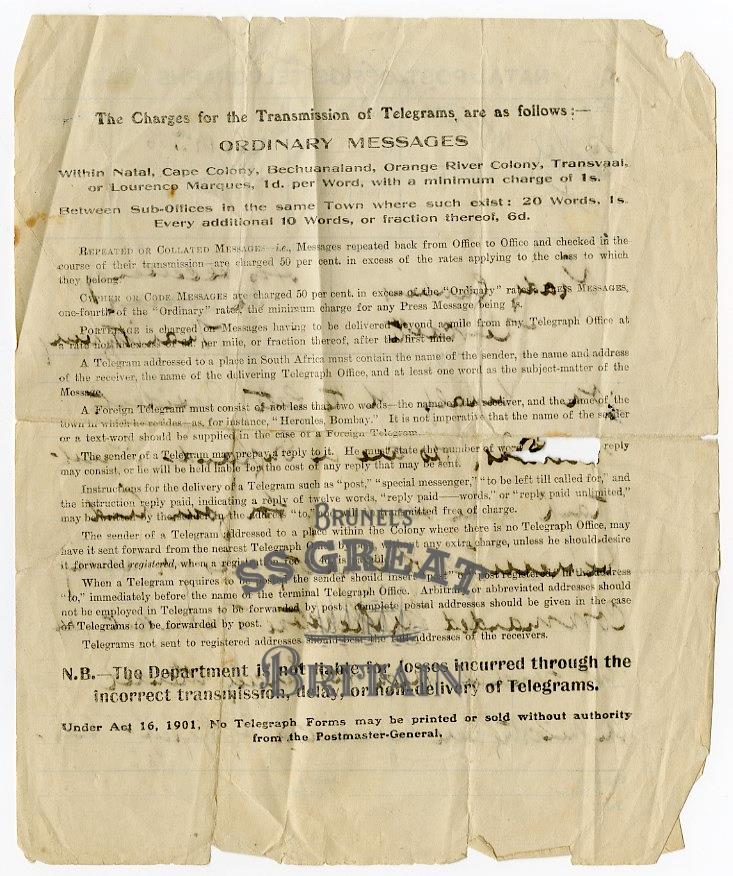 The Charges for the Transmission of Telegrams, are as follows:—
ORDINARY MESSAGES
Within Natal, Cape Colony, Bechuanaland, Orange River Colony, Transvaal,
or Lourenco Marques, 1d. per Word, with a minimum charge of 1s.
Between Sub-Offices in the same Town where such exist: 20 Words, 1s.
Every additional 10 Words, or fraction thereof, 6d.
REPEATED OR COLLATED MESSAGES—i.e., Messages repeated back from Office to Office and checked in the
course of their transmission—are charged 50 per cent. in excess of the rates applying to the class to which
they belong.
CYPHER OR CODE MESSAGES are charged 50 per cent. in excess of the "Ordinary" rate. MESSAGES,
one-fourth of the "Ordinary" rate, the minimum charge for any Press Message being 1s.
PORTERAGE is charged on Messages having to be delivered beyond a mile from any Telegraph Office at
a rate not per mile, or fraction thereof, after the first mile.
A Telegram addressed to a place in South Africa must contain the name of the sender, the name and address
of the receiver, the name of the delivering Telegraph Office, and at least one word as the subject-matter of the
Message.
A Foreign Telegram must consist of not less than two words—the name of the receiver, and the name of the
town in which he resides—as, for instance, "Hercules, Bombay." It is not imperative that the name of the sender
or a text-word should be supplied in the case of a Foreign Telegram.
The sender of a Telegram may prepay a reply to it. He must state the number of words reply
may consist, or he will be held liable for the cost of any reply that may be sent.
Instructions for the delivery of a Telegram such as "post," "special messenger," "to be left till called for," and
the instruction reply paid, indicating a reply of twelve words, "reply paid—words," or "reply paid unlimited,"
may be by the in the address "to," will be transmitted free of charge.
The sender of a Telegram addressed to a place within the Colony where there is no Telegraph Office, may
have it sent forward from the nearest Telegraph Office by any extra charge, unless he should desire
it forwarded registered, when a registration fee is
When a Telegram requires to be the sender should insert "post" or post registered, in the address
"to," immediately before the name of the terminal Telegraph Office. Arbitrary or abbreviated addresses should
not be employed in Telegrams to be forwarded by post. Complete postal addresses should be given in the case
of Telegrams to be forwarded by post.
Telegrams not sent to registered addresses should bear the full addresses of the receivers.
N.B.—The Department is not liable for losses incurred through the
incorrect transmission, delay, or non-delivery of Telegrams.
Under Act 16, 1901, No Telegraph Forms may be printed or sold without authority
from the Postmaster-General.
BRUNEL'S
SS GREAT
BRITAIN